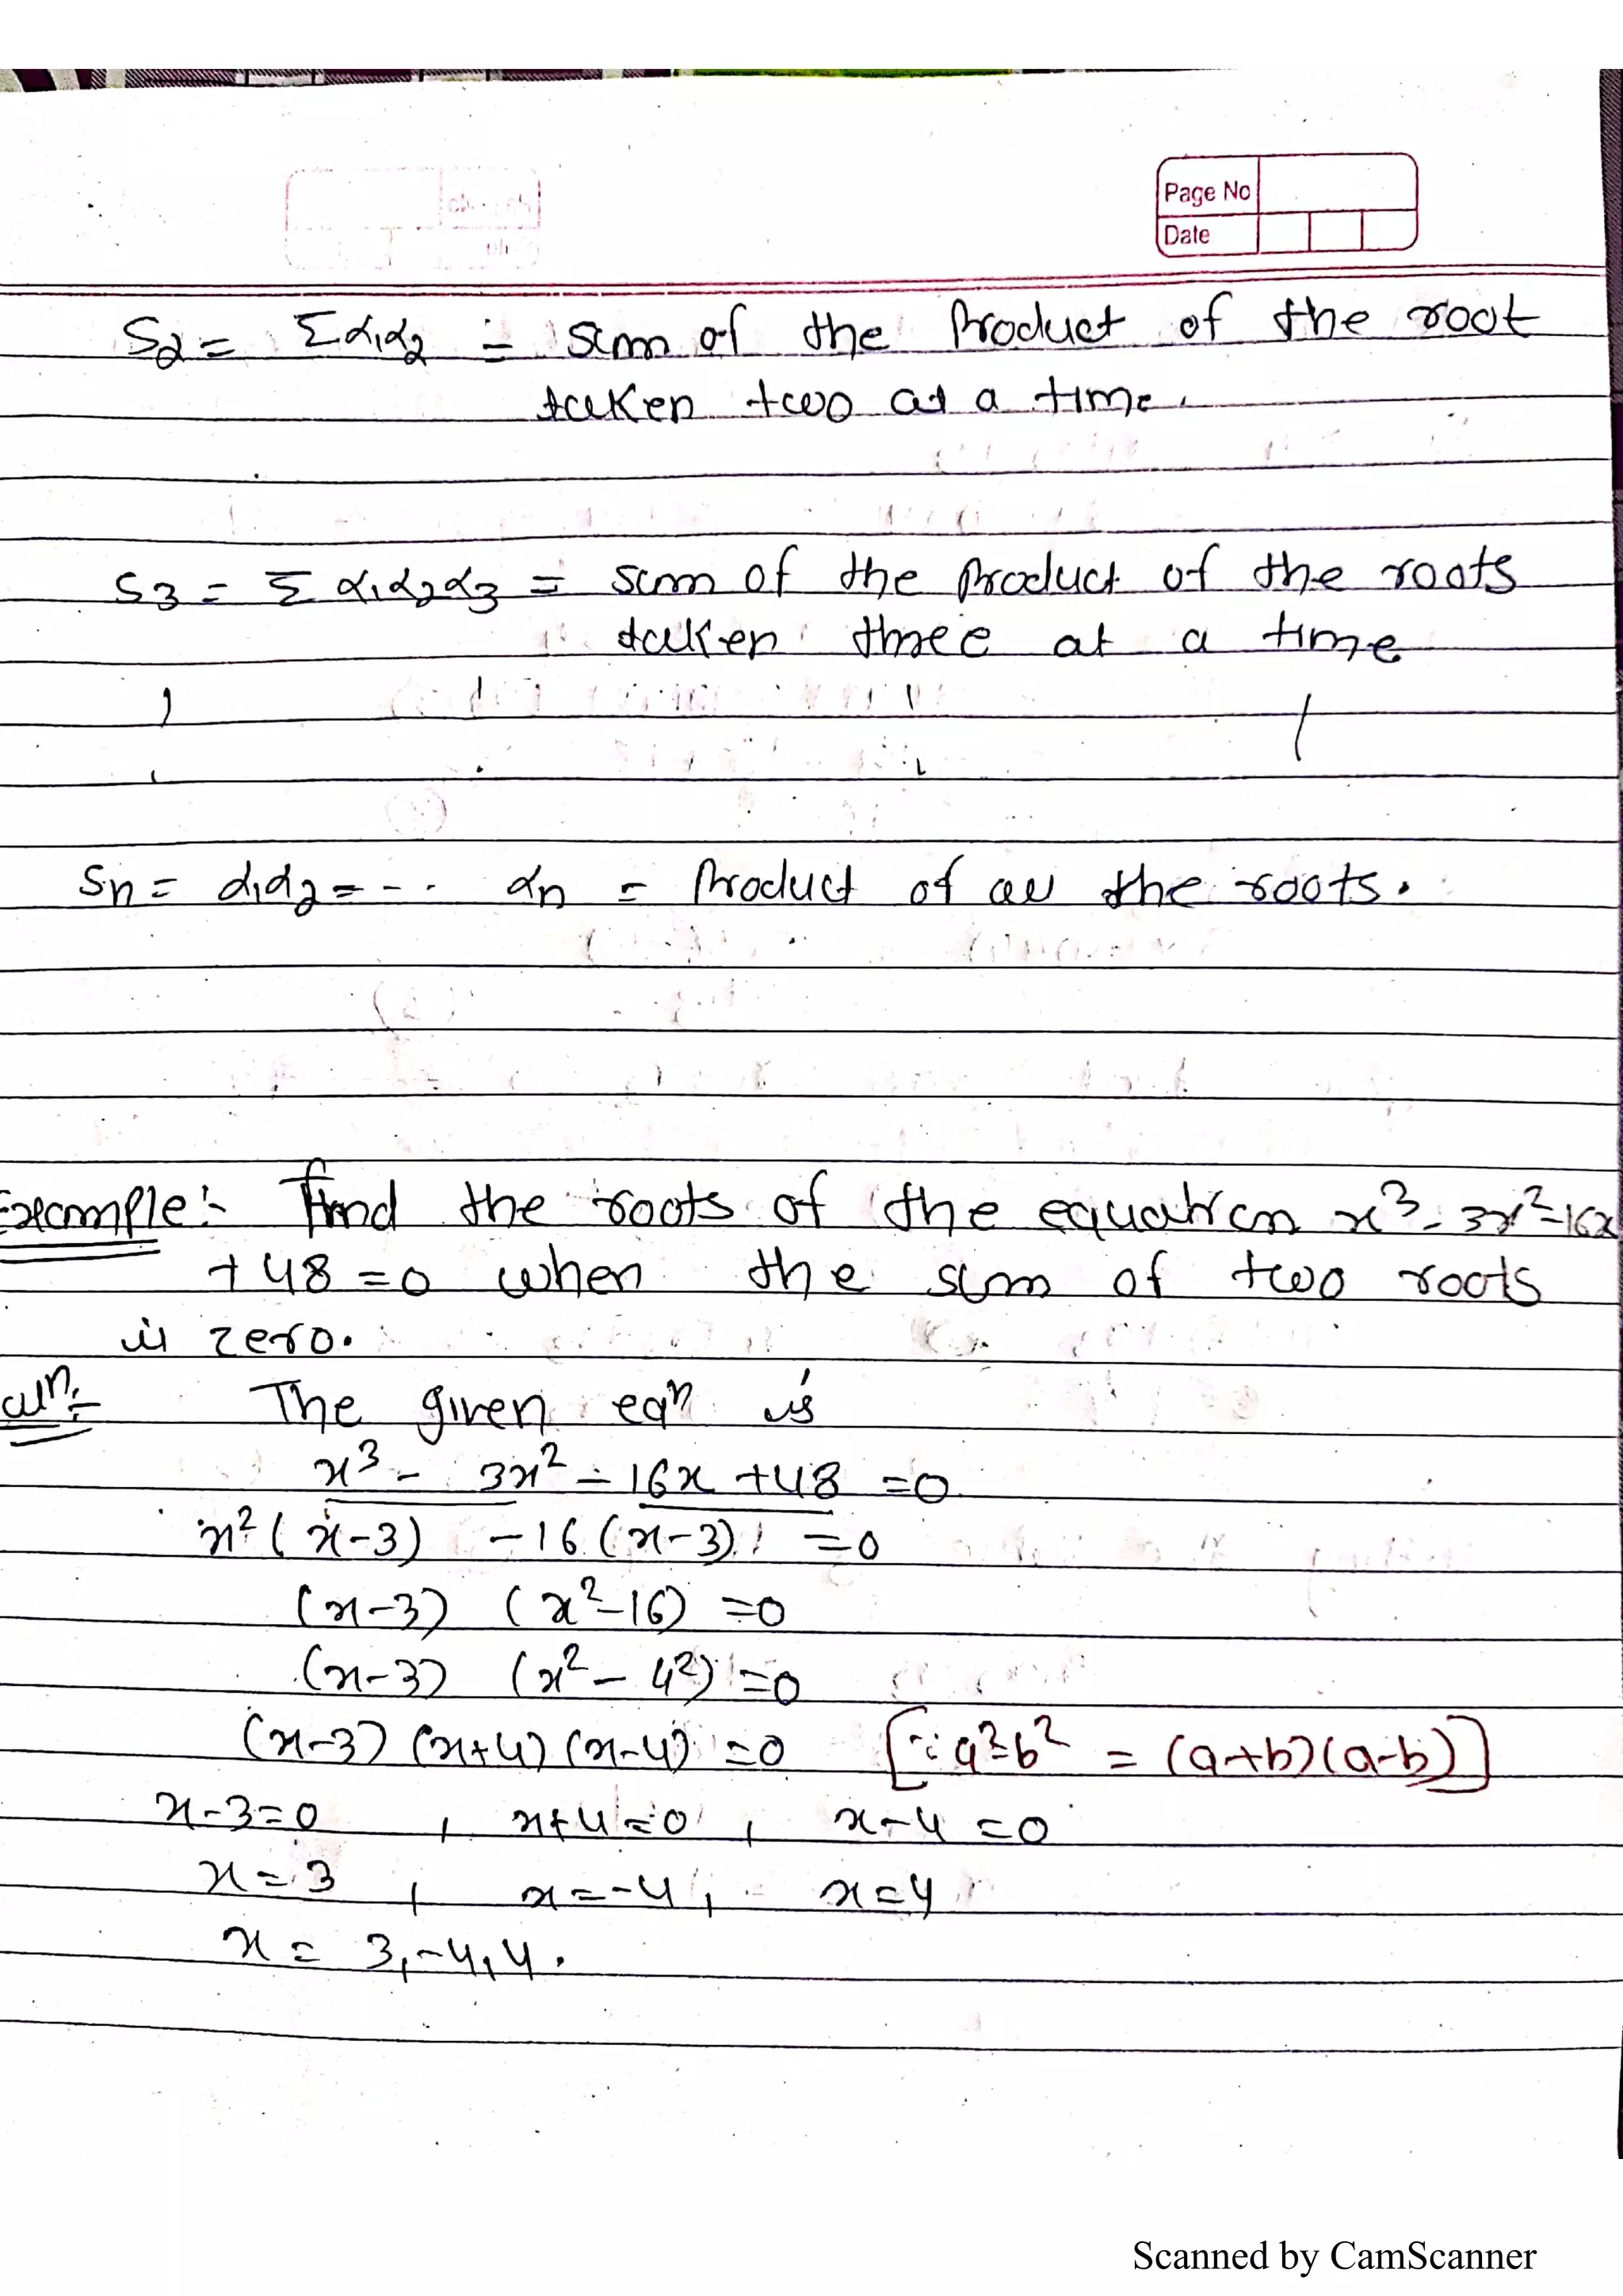 Page No
Date
S2 = Σα1α2 = sum of the Product of the root
taken two at a time.
S3 = Σ α1α2α3 = sum of the product of the roots
taken three at a time
Sn = α1α2 = - - . αn = Product of all the roots.
Example:- Find the roots of the equation x³ - 3x² - 16x
+ 48 = 0 when the sum of two roots
is zero.
The given eqn is
x³ - 3x² - 16x + 48 = 0
x² (x-3) - 16 (x-3) = 0
(x-3) (x²-16) = 0
(x-3) (x² - 4²) = 0
(x-3) (x+4) (x-4) = 0 [∵ a²-b² = (a+b)(a-b)]
x-3=0 , x+4=0 , x-4=0
x=3 , x=-4 , x=4
x = 3,-4,4.
Scanned by CamScanner